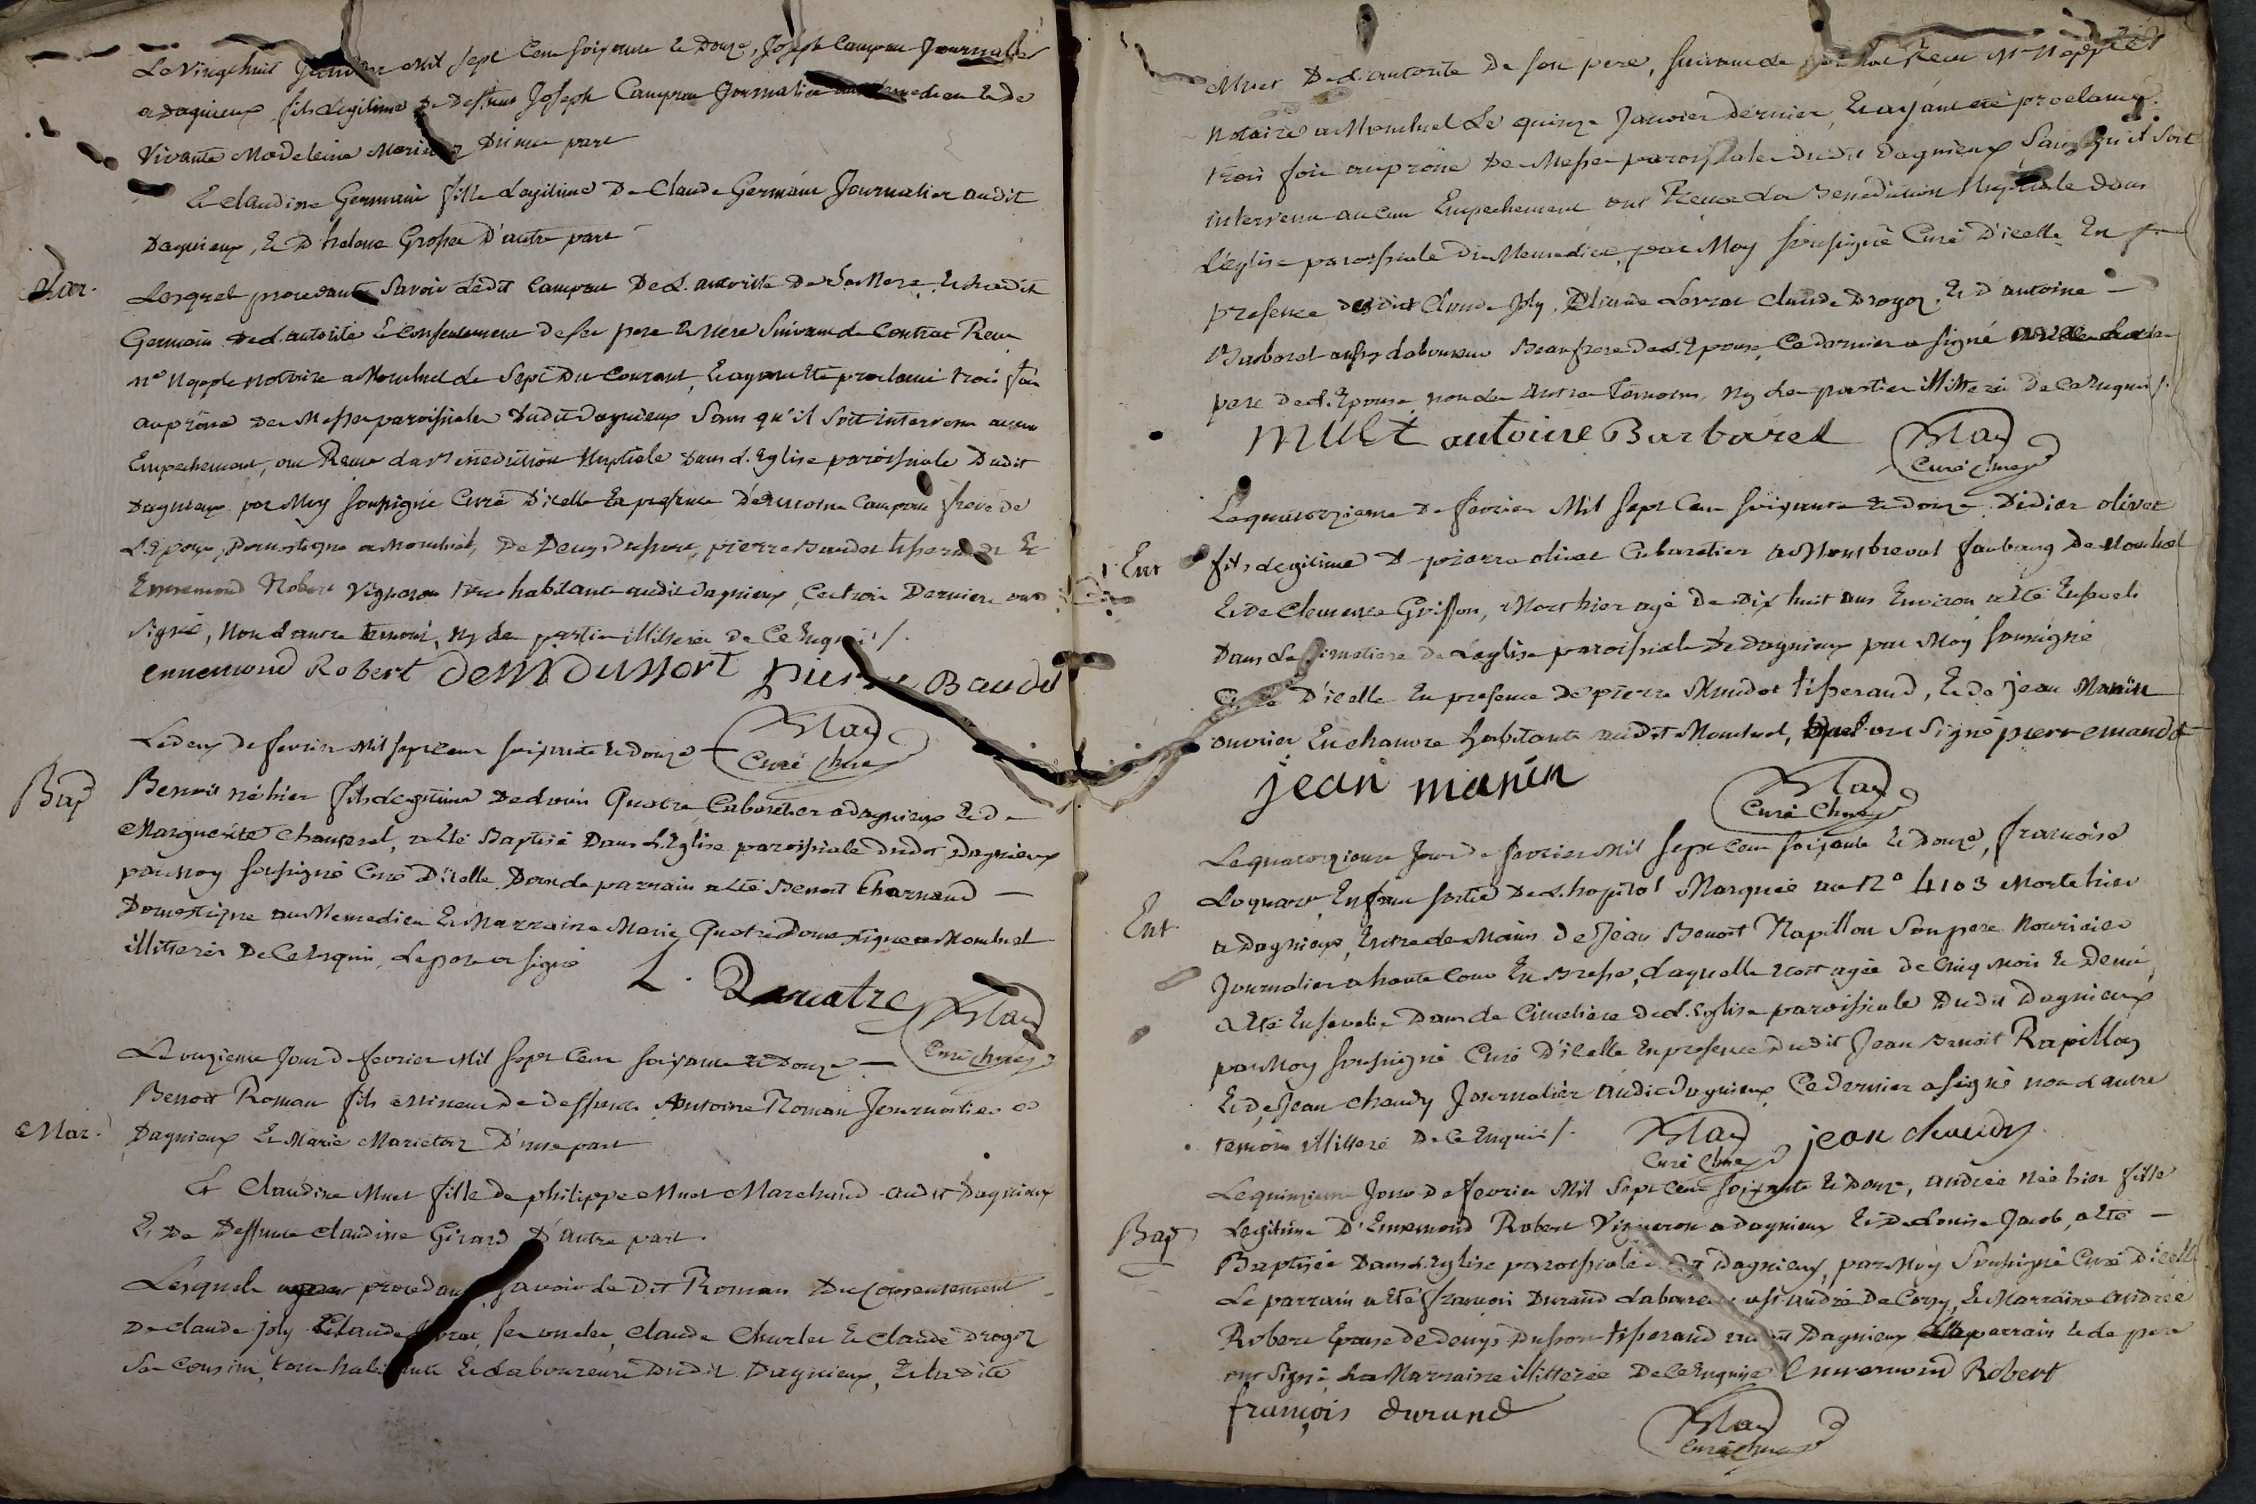 Le vingt huit Janvier Mil sept Cent soixante et Douze, Joseph Campan Journalier
a Dagnieux fils Legitime De Deffunt Joseph Campan Journalier et De
Vivante Madeleine D'une part
Et claudine Germain fille Legitime De Claude Germain Journalier audit
Dagnieux, Et D helene Grosse D'autre part
Mar.
Lesquels procedants Savoir Ledit Campan De L. autorité De Sa Mere, et Ladite
Germain De L. autorité et Consentement de ses pere et Mere Suivant Le Contrat Recu
notaire a Montluel Le Sept Du Courant, Et ayant eté proclamé trois fois
au prône De Messe paroissiale Dudit Dagnieux Sans qu'il soit intervenu aucun
Empechement, ont Recu La Benediction Nuptiale Dans L. Eglise paroissiale Dudit
Dagnieux par Moy soussigné Curé D'icelle En presence D'Antoine Campan frere de
L. Epoux, Domestique a Montluel, De Denys Dussort, pierre Baudet tisserand Et
Ennemond Robert Vigneron tous habitants audit Dagnieux, Ces trois Derniers ont
Signé, Non L autre temoin, Ny Les parties illitterées De Ce Enquis /.
ennemond Robert Denis dussort pierre Baudet
Curé
Le deux De fevrier Mil sept cent soixante et Douze
Bap
Benoit né hier fils Legitime De Louis Quatre Cabaretier a Dagnieux Et De
Marguerite Chanterel, a Eté Baptisé Dans L Eglise paroissiale Dudit Dagnieux
par Moy soussigné Curé D'icelle Dont Le parrain a Eté Benoit Charnand
Domestique au Et Marraine Marie Quatre Domestique a Montluel
illitterés De Ce Enquis, Le pere a signé
L. Quatre
Curé
L'onzieme Jour De fevrier Mil Sept Cent soixante et Douze
Benoit Roman fils Mineur De Deffunts Antoine Roman Journalier a
Mar.
Dagnieux Et Marie Marietton D'une part
Et Claudine Muet fille De philippe Muet Marchand audit Dagnieux
Et De Deffunte Claudine Girard D'autre part.
Lesquels procedant savoir Le Dit Roman Du Consentement
De Claude Joly Claude Ses oncles, Claude Charles Et Claude Drogoz
Son Cousin, tous habitants Et Laboureurs Dudit Dagnieux, Et ladite
Muet De L'autorité De son pere, suivant Le Recu
Notaire a Montluel Le quinze Janvier Dernier, Et ayant eté proclamé
trois fois au prône De Messe paroissiale Dudit Dagnieux Sans qu'il soit
intervenu aucun Empechement ont Receu La Benediction Nuptiale Dans
L'Eglise paroissiale Du par Moy soussigné Curé D'icelle En
presence desdits Claude Joly, Claude Claude Drogoz, Et D antoine
Barbaret aussy Laboureur Beaufrere De L. Epouse, Ce dernier a signé avec Le
pere De L. Epouse, non Les autres temoins, Ny Les parties illitterés De Ce Enquis /.
MUET antoine Barbaret
Curé
Le quatorzieme De fevrier Mil Sept Cent soixante et douze Didier olivet
Ent
fils Legitime De pierre olivet Cabaretier a Montbreval faubourg De Montluel
Et De Clemence Griffon, Mort hier agé De Dix huit ans Environ a Eté Enseveli
Dans Le Cimetiere De L'eglise paroissiale De Dagnieux par Moy soussigné
Curé D'icelle En presence De pierre Mandot tisserand, Et De Jean Manin
ouvrier En chanvre habitants audit Montluel, Lesquels ont Signé pierre mandot
jean manin
Curé
Le quatorzieme Jour De fevrier Mil Sept Cent soixante Et Douze, francoise
Enfant sortie De L. hopital Marquée au N° 4103 Morte hier
Ent
a Dagnieux, Entre Les Mains De Jean Benoit Rapillon Son pere Nouricier
Journalier a haute Cour En Bresse, Laquelle Etoit agée De Cinq Mois Et Demi,
a Eté Ensevelie Dans Le Cimetiere De L. Eglise paroissiale Dudit Dagnieux
par Moy soussigné Curé D'icelle En presence Dudit Jean Benoit Rapillon
Et De Jean Chaudy Journalier audit Dagnieux Ce dernier a signé non L autre
temoin illitteré De Ce Enquis /.
jean chaudy
Curé
Le quinzieme Jour De fevrier Mil Sept Cent soixante Et Douze, andrée née hier fille
Bap
Legitime D'Ennemond Robert Vigneron a Dagnieux Et De Louise Jacob, a Eté
Baptisée Dans L. Eglise paroissiale Dagnieux, par Moy soussigné Curé D'icelle
Le parrain a Eté francois Durand Laboureur a St andré De Corcy, Et Marraine andrée
Robert Epouse De Denys Dussort tisserand audit Dagnieux Le parrain Et Le pere
ont Signé La Marraine illitterée De Ce Enquise Ennemond Robert
françois durand
Curé